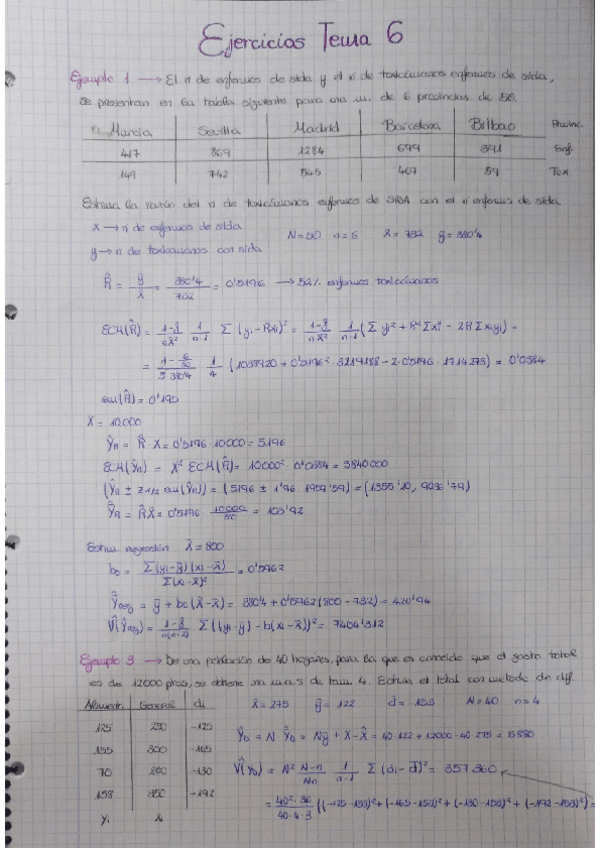 Ejercicios Tema 6
Ejemplo 1 → El nº de enfermos de sida y el nº de toxicómanos enfermos de sida,
se presentan en la tabla siguiente para una m. de 6 provincias de 50.
Murcia Sevilla Madrid Barcelona Bilbao Provinc.
417 869 1284 699 391 Enf.
149 742 545 407 59 Tox.
Estima la razón del nº de toxicómanos enfermos de SIDA con el nº enfermos de sida
X → nº de enfermos de sida N=50 n=6 x̄ = 732 ȳ = 380'4
y → nº de toxicómanos con sida
R̂ = ȳ/x̄ = 380'4/732 = 0'5196 → 52% enfermos toxicómanos
ECM(R̂) = (1-f)/(nx̄²) 1/(n-1) Σ(yi - Rxi)² = (1-f)/(nx̄²) 1/(n-1) (Σyi² + R²Σxi² - 2RΣxiyi) =
1/4 (1038920 + 0'5196² · 3219188 - 2·0'5196 · 1714273) = 0'0384
X = 10.000
ŶR = R̂ X = 0'5196 · 10000 = 5196
ECM(ŶR) = X² ECM(R̂) = 10000² · 0'0384 = 3840000
= (5196 ± 1'96 · 1959'59) = (1355'20, 9036'79)
= R̂X̄ = 0'5196 · 10000/50 = 103'92
Estim. regresión X̄ = 800
b₀ = Σ(yi-ȳ)(xi-x̄)/Σ(xi-x̄)² = 0'5962
Ȳreg = ȳ + b₀(X̄-x̄) = 380'4 + 0'5962(800 - 732) = 420'94
V̂(Ȳreg) = (1-f)/(n(n-2)) Σ((yi-ȳ) - b(xi-x̄))² = 7404'312
Ejemplo 3 → De una población de 40 hogares, para la que es conocido que el gasto total
es de 12000 ptas, se obtiene una m.a.s de tam. 4. Estima el total con método de dif
Alimentn General di x̄ = 275 ȳ = 122 d̄ = -153 N = 40 n = 4
125 250 -125
ŶD = Nȳ + X - x̄ = 40·122 + 12000 - 40·275 = 5880
155 300 -165
70 200 -130 V̂(yD) = N² (N-n)/(Nn) 1/(n-1) Σ(di - d̄)² = 357360
158 350 -192 = 40²·36/(40·4·3) ((-125-153)² + (-165-153)² + (-130-153)² + (-192-153)²) =
yi xi